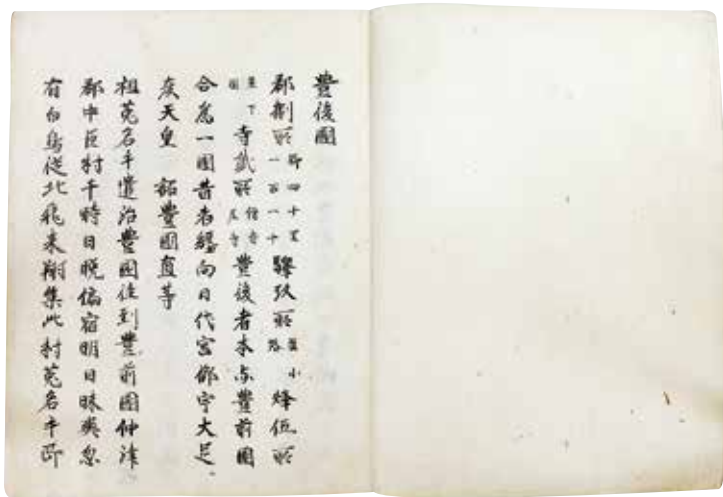 豊後國
郡捌所郷四十里一百一十驛玖所並小路烽伍所
並下國寺貳所僧寺尼寺豊後者本与豊前國
合為一國昔者纏向日代宮御宇大足
彦天皇 詔豊國直等
祖菟名手遣治豊國往到豊前國仲津
郡中臣村于時日晩僑宿明日昧爽忽
有白鳥従北飛来翔集此村菟名手即